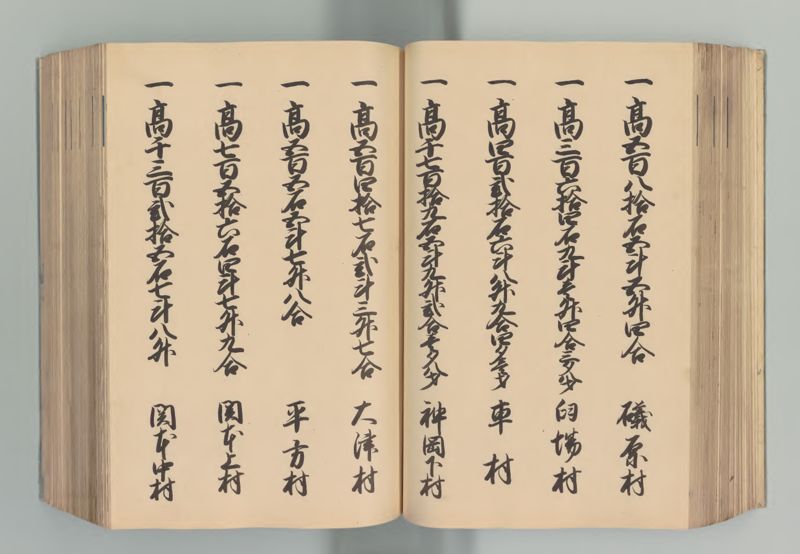 一 高五百八拾石五斗五升四合 磯原村
一 高三百六拾四石九斗壱升四合三夕才 臼場村
一 高四百弐拾石六斗八升九合四夕壱才 車村
一 高千七百拾九石五斗九升弐合壱夕八才 神岡下村
一 高五百四拾七石弐斗三升七合 大津村
一 高五百五石五斗七升八合 平方村
一 高七百五拾六石四斗七升九合 関本上村
一 高千三百弐拾五石七斗八升 関本中村